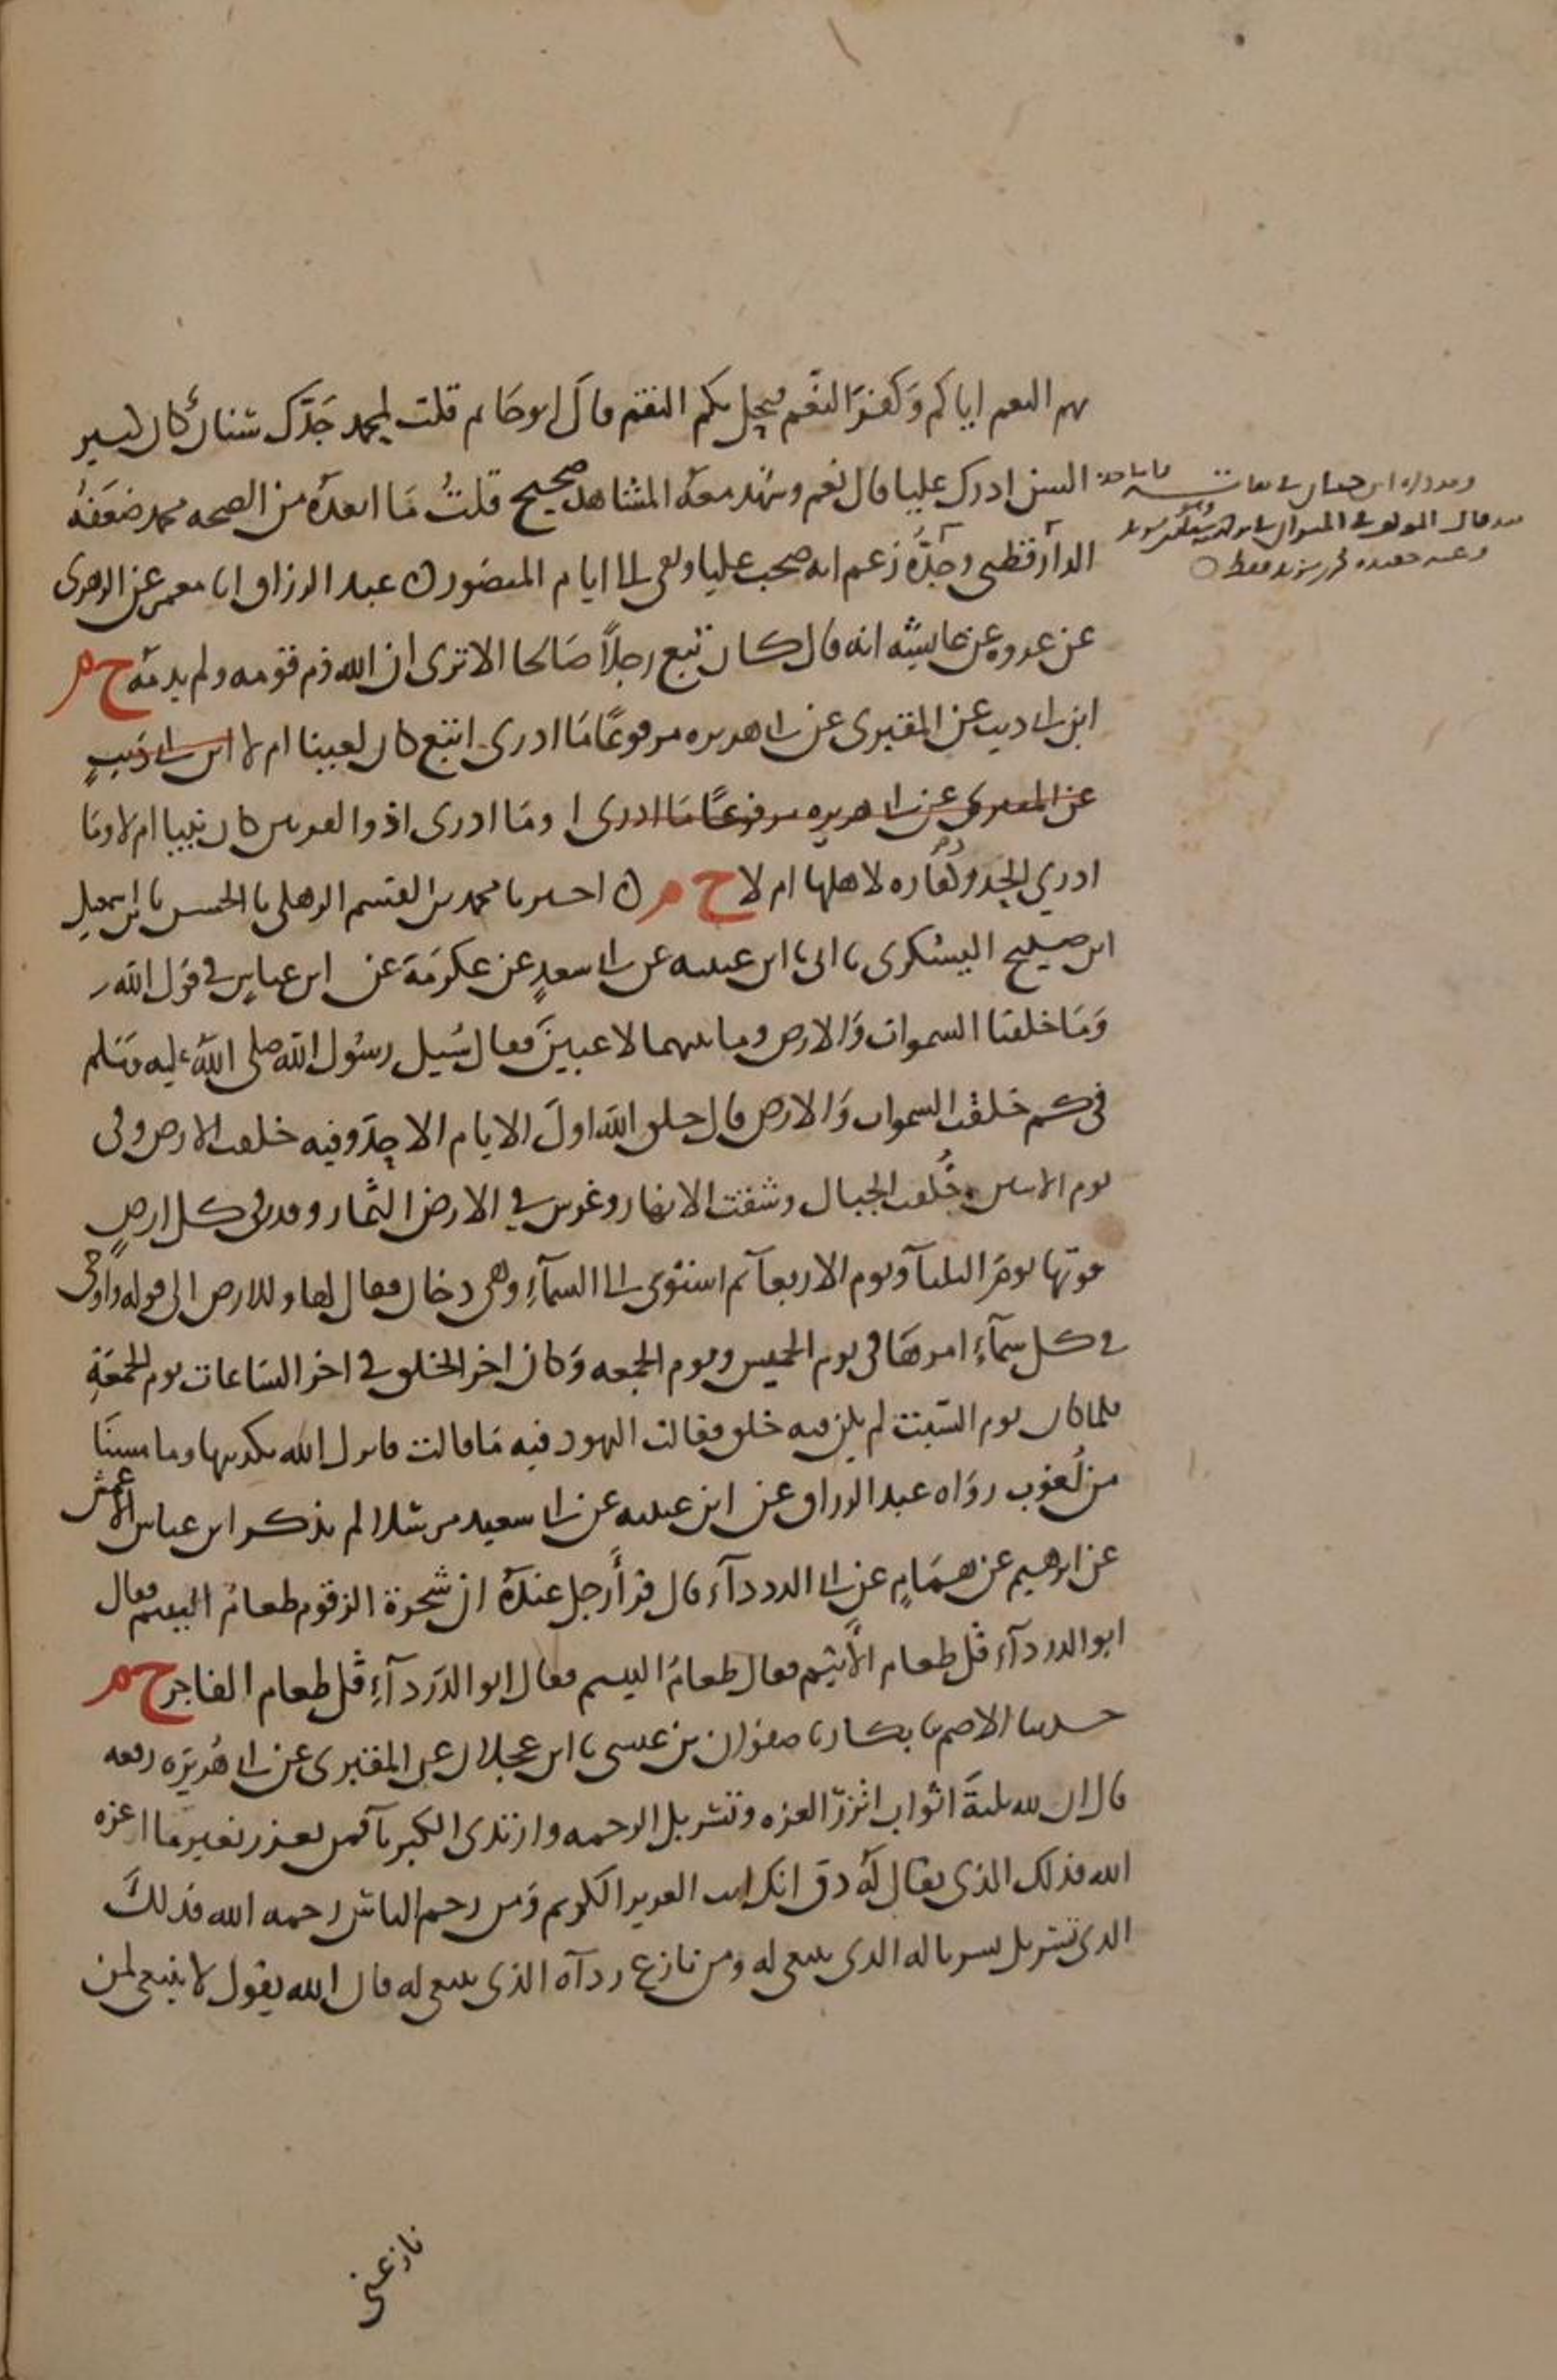 بهم النعم اياكم وكفر النعم فيحل بكم النقم قال ابو حاتم قلت لمحمد جدك شنان كان كبير
السن ادرك عليا قال نعم وشهد معه المشاهد صحيح قلت ما ابعده من الصحه محمد ضعفه
الدارقطني وجده زعم انه صحب عليا وبقى الى ايام المنصور ن عبد الرزاق انا معمر عن الزهرى
عن عروه عن عايشه انه قال كان تبع رجلا صالحا الا ترى ان الله ذم قومه ولم يذمه خ م
ابن ابى ديب عن المقبرى عن ابى هريره مرفوعا ما ادرى اتبع كان لعينا ام لا ابن ابى ذيب
عن المقبرى عن ابى هريره مرفوعا ما ادرى ا وما ادرى اذو القرنين كان نبيا ام لا وما
ادري الحدود كفاره لاهلها ام لا خ م ن احمد نا محمد بن القسم الذهلى نا الحسن نا ابن اسمعيل
ابن صبيح اليشكرى نا ابى نا ابن عيينه عن ابى سعد عن عكرمة عن ابن عباس في قول الله
وما خلقنا السموات والارض وما بينهما لاعبين فقال سيل رسول الله صلى الله عليه وسلم
في كم خلقت السموات والارض قال خلق الله اول الايام الاحد وفيه خلقت الارض وفى
يوم الاثنين خلقت الجبال وشقت الانهار وغرس في الارض الثمار وقدر في كل ارض
قوتها يوم الثلثآ ويوم الاربعآ ثم استوى الى السمآء وهى دخان فقال لها وللارض الى قوله واوحى
في كل سمآء امرها فى يوم الخميس ويوم الجمعه وكان اخر الخلق في اخر الساعات يوم الجمعة
فلما كان يوم السبت لم يكن فيه خلق فقالت اليهود فيه ما قالت فانزل الله تكذيبها وما مسنا
من لغوب رواه عبد الرزاق عن ابن عيينه عن ابى سعيد مرسلا لم يذكر ابن عباس الاعمش
عن ابرهيم عن همام عن ابى الدردآء قال قرأ رجل عنده ان شجرة الزقوم طعام اليتيم فقال
ابو الدردآء قل طعام الأثيم فقال طعام اليتيم فقال ابو الدردآء قل طعام الفاجر خ م
حدثنا الاصم نا بكار نا صفوان بن عيسى نا ابن عجلان عن المقبرى عن ابى هريره رفعه
قال ان لله ثلثة اثواب اتزر العزه وتسربل الرحمه وارتدى الكبريآ فمن تعزز بغير ما اعزه
الله فذلك الذى يقال له ذق انك انت العزيز الكريم ومن رحم الناس رحمه الله فذلك
الذى تسربل بسرباله الذى ينبغى له ومن نازع ردآه الذى ينبغى له فان الله يقول لا ينبغي لمن
نازعنى